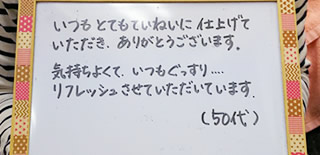 いつも とてもていねいに 仕上げて
いただき、ありがとうございます。
気持ちよくて、いつもぐっすり‥‥
リフレッシュさせていただいています.
(50代)